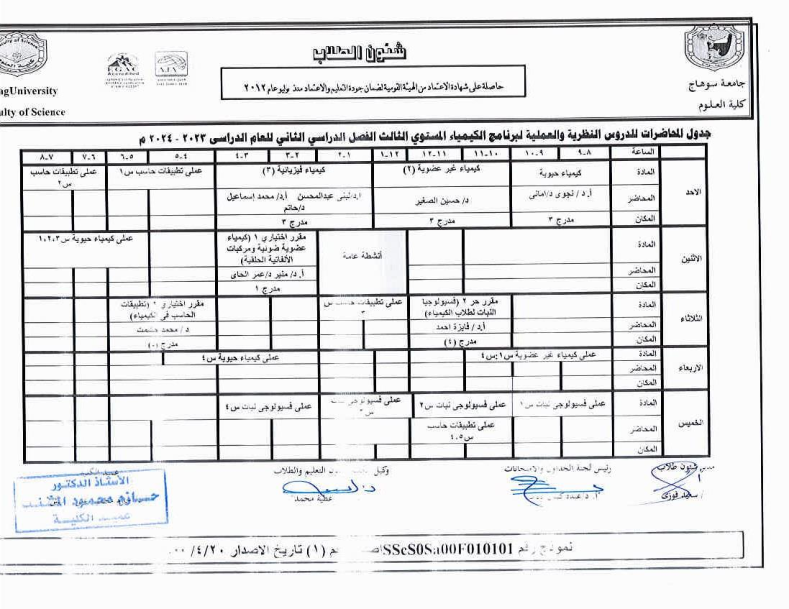 شئون الطلاب
حاصلة على شهادة الاعتماد من الهيئة القومية لضمان جودة التعليم والاعتماد منذ يوليو عام ٢٠١٢
agUniversity
ulty of Science
جامعة سوهاج
كلية العلوم
جدول المحاضرات للدروس النظرية والعملية لبرنامج الكيمياء المستوي الثالث الفصل الدراسي الثاني للعام الدراسى ٢٠٢٣ - ٢٠٢٤ م
الساعة ٨-٩ ٩-١٠ ١٠-١١ ١١-١٢ ١٢-١ ١-٢ ٢-٣ ٣-٤ ٤-٥ ٥-٦ ٦-٧ ٧-٨
الاحد
المادة كيمياء حيوية كيمياء غير عضوية (٢) كيمياء فيزيائية (٣) عملى تطبيقات حاسب س١ عملى تطبيقات حاسب س٢
المحاضر أ.د / نجوى د/امانى د/ حسين الصغير أ.د/لبنى عبدالمحسن أ.د/ محمد إسماعيل د/حاتم
المكان مدرج ٣ مدرج ٣ مدرج ٣
الاثنين
المادة أنشطة عامة مقرر اختياري ١ (كيمياء عضوية ضوئية ومركبات الألفاتية الحلقية) عملى كيمياء حيوية س١،٢،٣
المحاضر أ.د/ منير د/عمر الحاى
المكان مدرج ١
الثلاثاء
المادة مقرر حر ٢ (فسيولوجيا النبات لطلاب الكيمياء) عملى تطبيقات حاسب س مقرر اختياري (تطبيقات الحاسب فى الكيمياء)
المحاضر أ.د / فايزة احمد د / محمد حشمت
المكان مدرج (٤) مدرج (٠)
الاربعاء
المادة عملى كيمياء غير عضوية س١:س٤ عملى كيمياء حيوية س٤
المحاضر
المكان
الخميس
المادة عملى فسيولوجى نبات س١ عملى فسيولوجى نبات س٢ عملى فسيولوجى نبات س عملى فسيولوجى نبات س٤
عملى تطبيقات حاسب س٤،٥
المكان
شئون طلاب
رئيس لجنة الجداول والامتحانات
وكيل التعليم والطلاب
عطية محمد
الأستاذ الدكتور
عميد الكلية
نموذج رقم SScS0Sa00F010101 اصدار رقم (١) تاريخ الاصدار ٤/٢٠/